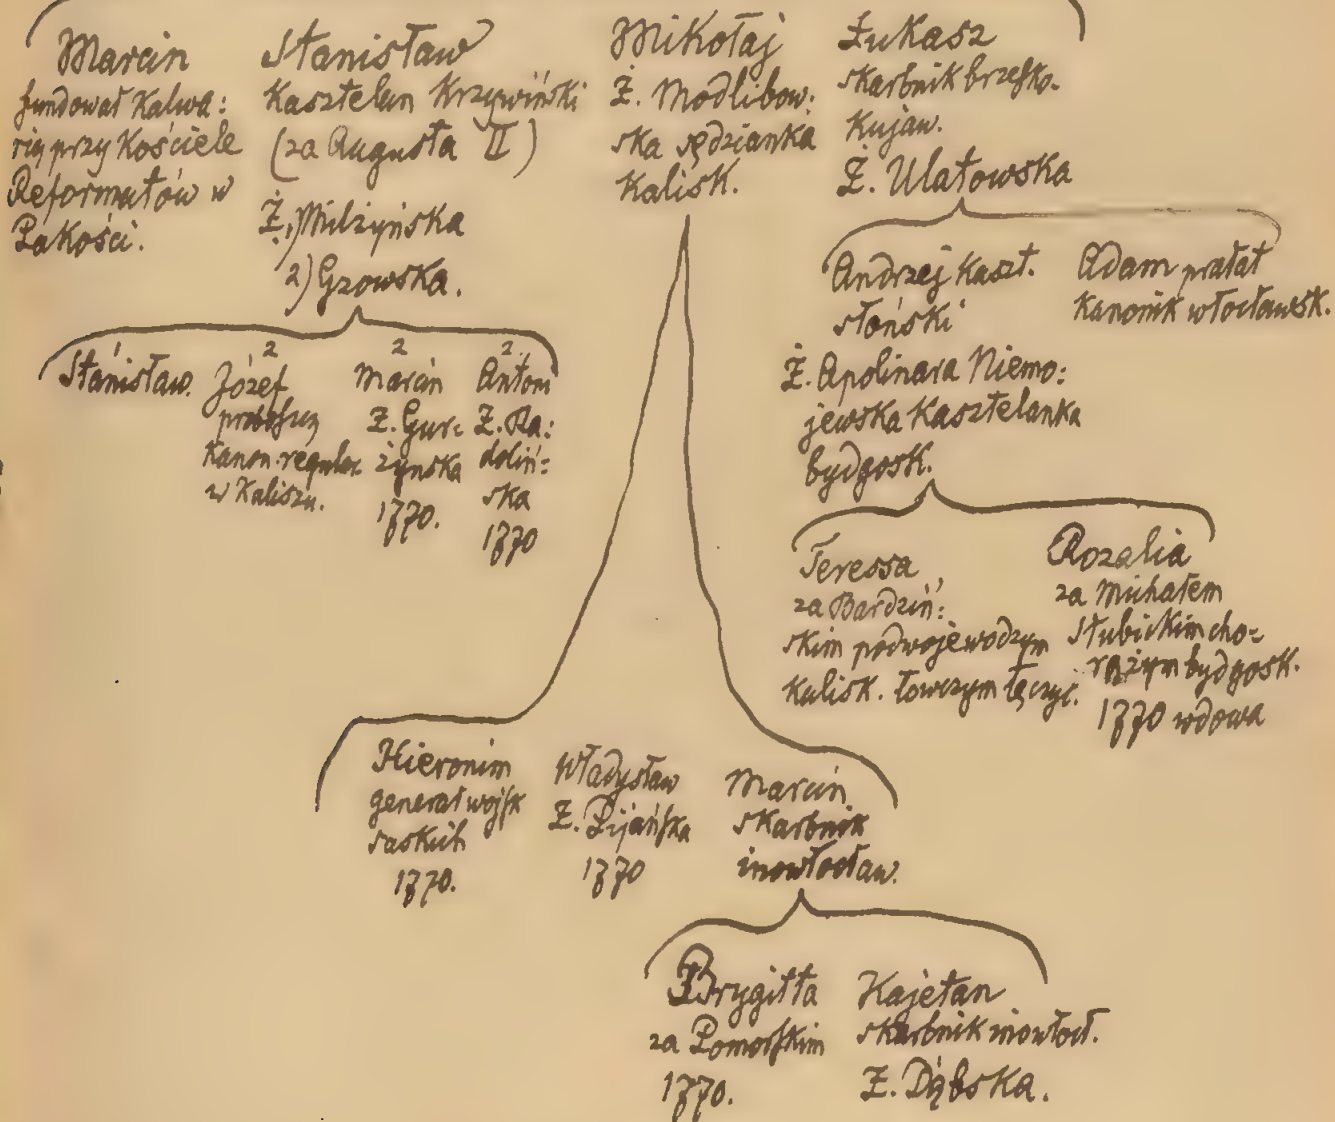 Marcin
fundował Kalwa:
rią przy Kościele
Reformatów w
Pakości.
Stanisław
Kasztelan Krzywiński
(za Augusta II)
Ż. 1) Milżyńska
2) Gzowska.
Mikołaj
Ż. Modlibow:
ska sędzianka
Kalisk.
Łukasz
skarbnik brzesko-
Kujaw.
Ż. Ulatowska
1
Stanisław.
2
Józef
proboszcz
Kanon. regular.
w Kaliszu.
2
Marcin
Ż. Gur:
żyńska
1770.
2
Antoni
Ż. Ra:
doliń:
ska
1770
Andrzej Kaszt.
słoński
Ż. Apolinara Niemo:
jewska Kasztelanka
bydgosk.
Adam prałat
Kanonik włocławsk.
Teressa
za Bardziń:
skim podwojewodzym
Kalisk. łowczym łęczyc.
Rozalia
za Michałem
Słubickim cho-
rążym bydgosk.
1770 wdowa
Hieronim
generał wojsk
saskich
1770.
Władysław
Ż. Pijańska
1770
Marcin
skarbnik
inowłocław.
Brygitta
za Pomorskim
1770.
Kajetan
skarbnik inowłocł.
Ż. Dąbska.